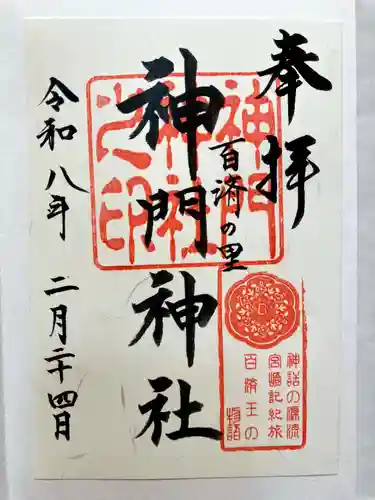 奉拝
百済の里
神門神社
令和八年 二月二十四日
神門
神社
之印
神話の源流
宮崎記紀旅
百済王の
物語